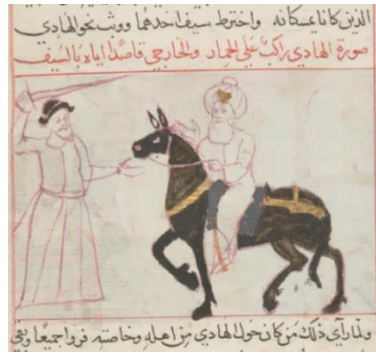 الذين كانا يمسكانه واخترط سيف احدهما ووثب نحو الهادي
صورة الهادي راكب على الحمار والخارجي قاصدا اياه بالسيف
ولما رآي ذلك من كان حول الهادي من اهله وخاصته فروا جميعا وبقي